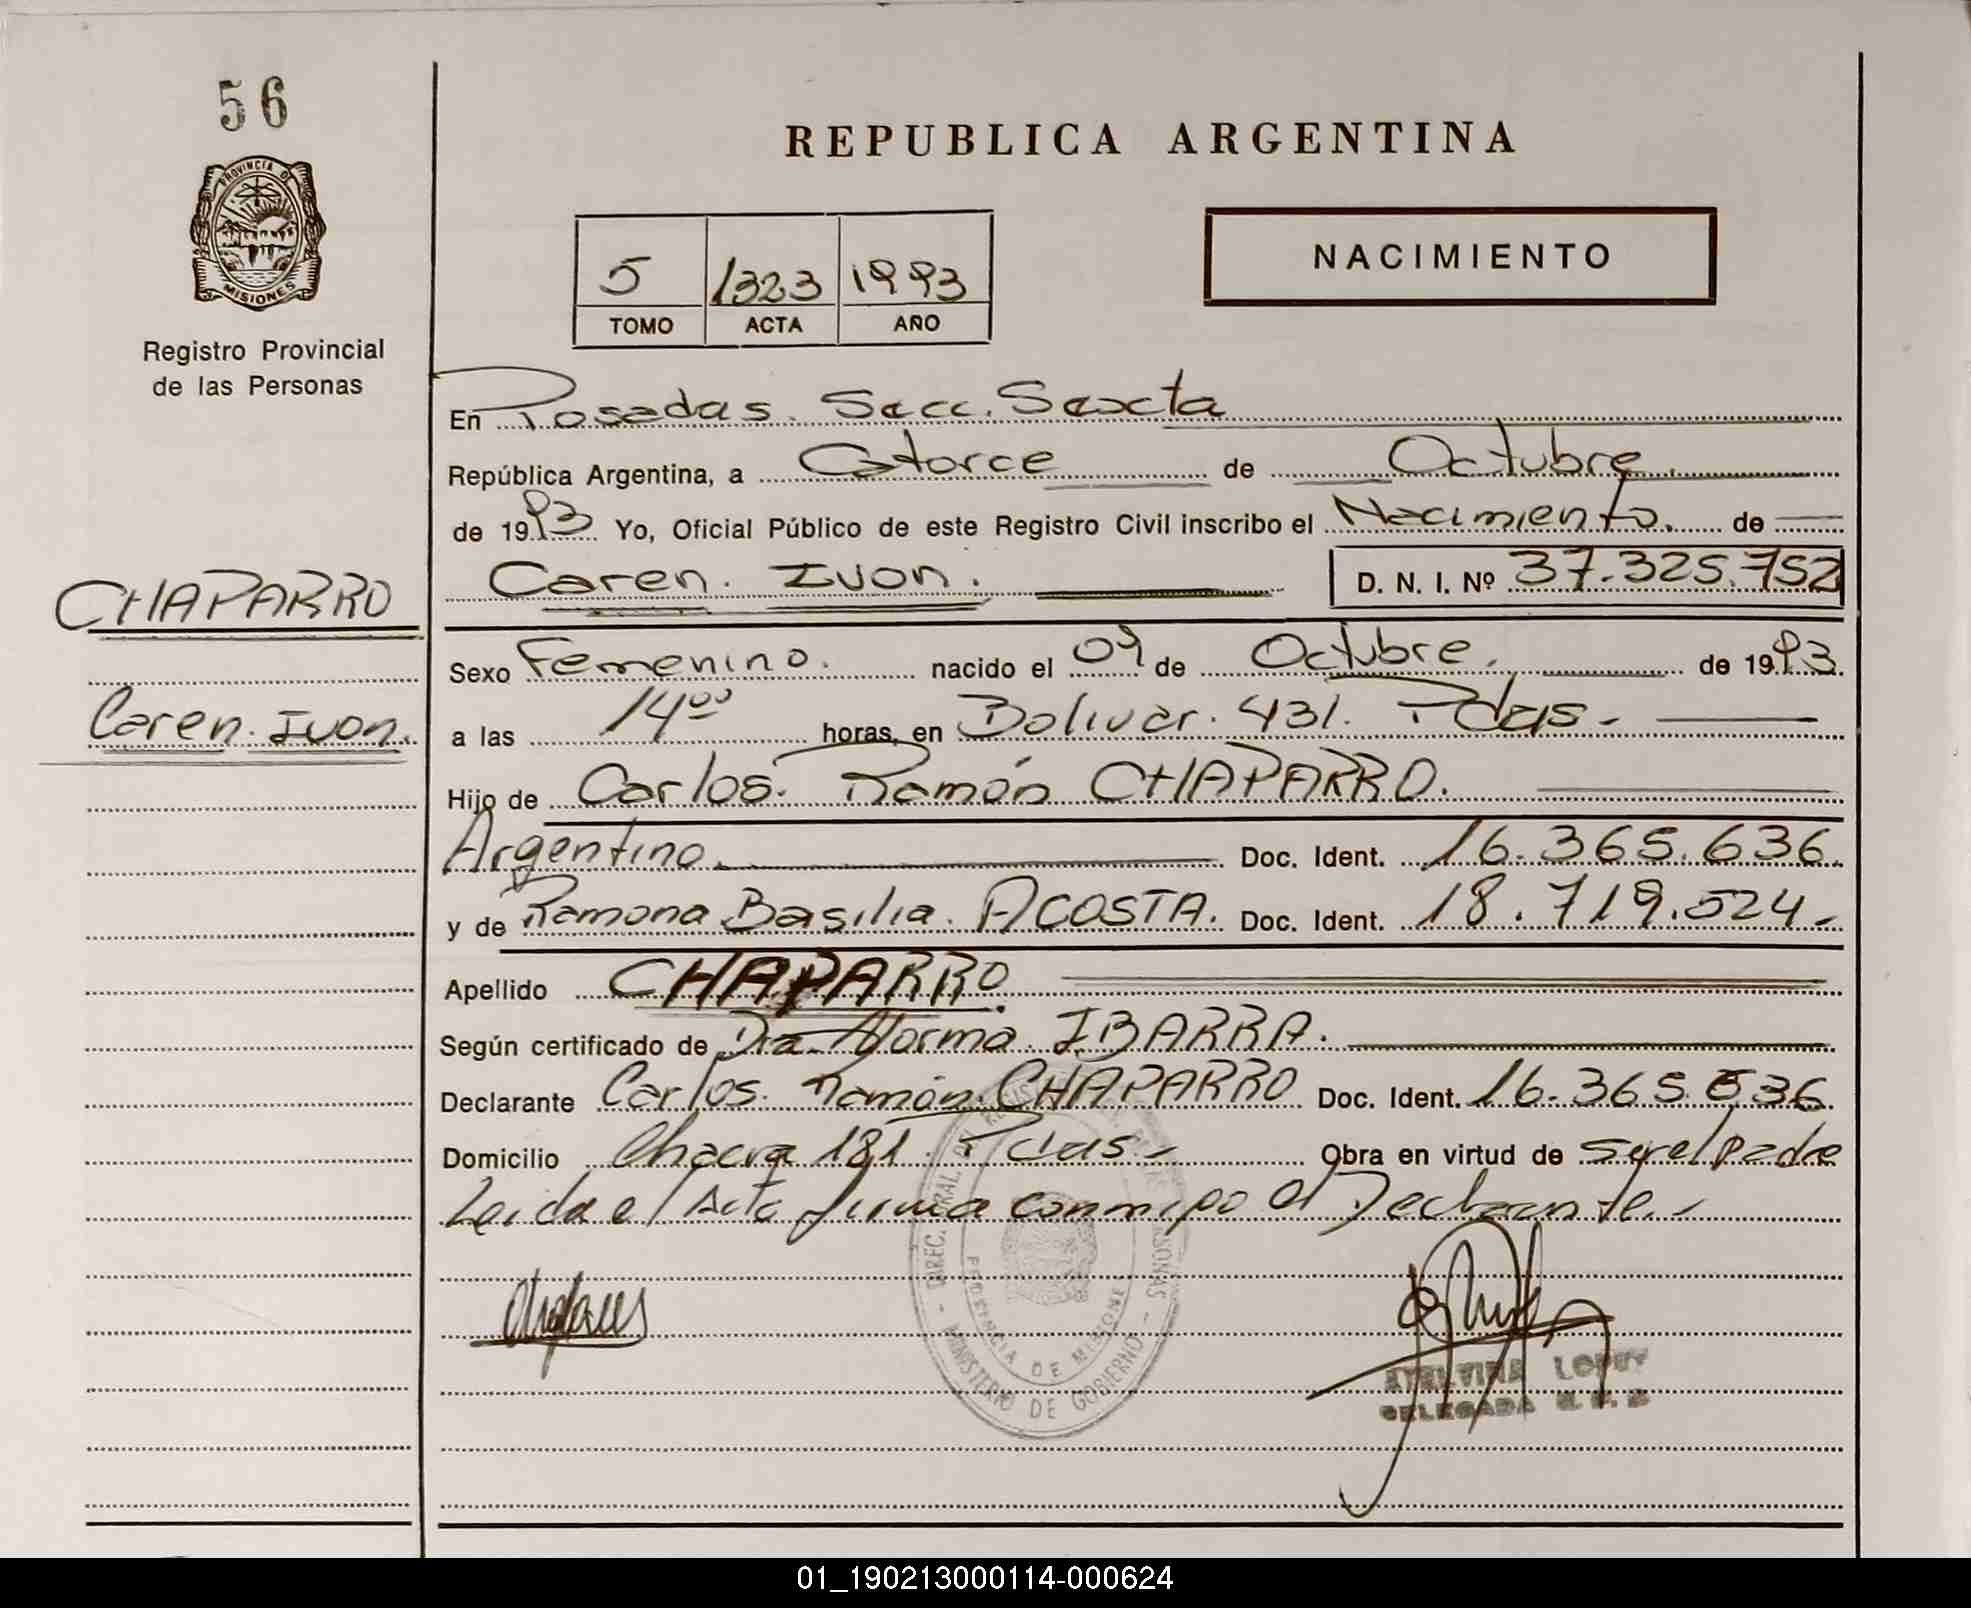 56
PROVINCIA DE
MISIONES
Registro Provincial
de las Personas
REPUBLICA ARGENTINA
NACIMIENTO
5 1323 1993
TOMO ACTA AÑO
En Posadas. Secc. Sexta
República Argentina, a Catorce de Octubre.
de 1993 Yo, Oficial Público de este Registro Civil inscribo el Nacimiento. de
Caren. Ivon. D. N. I. Nº 37.325.752
CHAPARRO
Caren. Ivon.
Sexo Femenino. nacido el 09 de Octubre. de 1993.
a las 14ºº horas, en Bolivar. 431. Pdas.-
Hijo de Carlos. Ramón CHAPARRO.
Argentino. Doc. Ident. 16.365.636.
y de Ramona Basilia. ACOSTA. Doc. Ident. 18.719.524.-
Apellido CHAPARRO.
Según certificado de Dra. Norma. IBARRA.
Declarante Carlos. Ramón. CHAPARRO Doc. Ident. 16.365.636.
Domicilio Chacra 181. Pdas.- Obra en virtud de ser el padre
Leida el Acta firma conmigo el Declarante.-
PROVINCIA DE MISIONES
MINISTERIO DE GOBIERNO
LOPEZ
DELEGADA
01_190213000114-000624